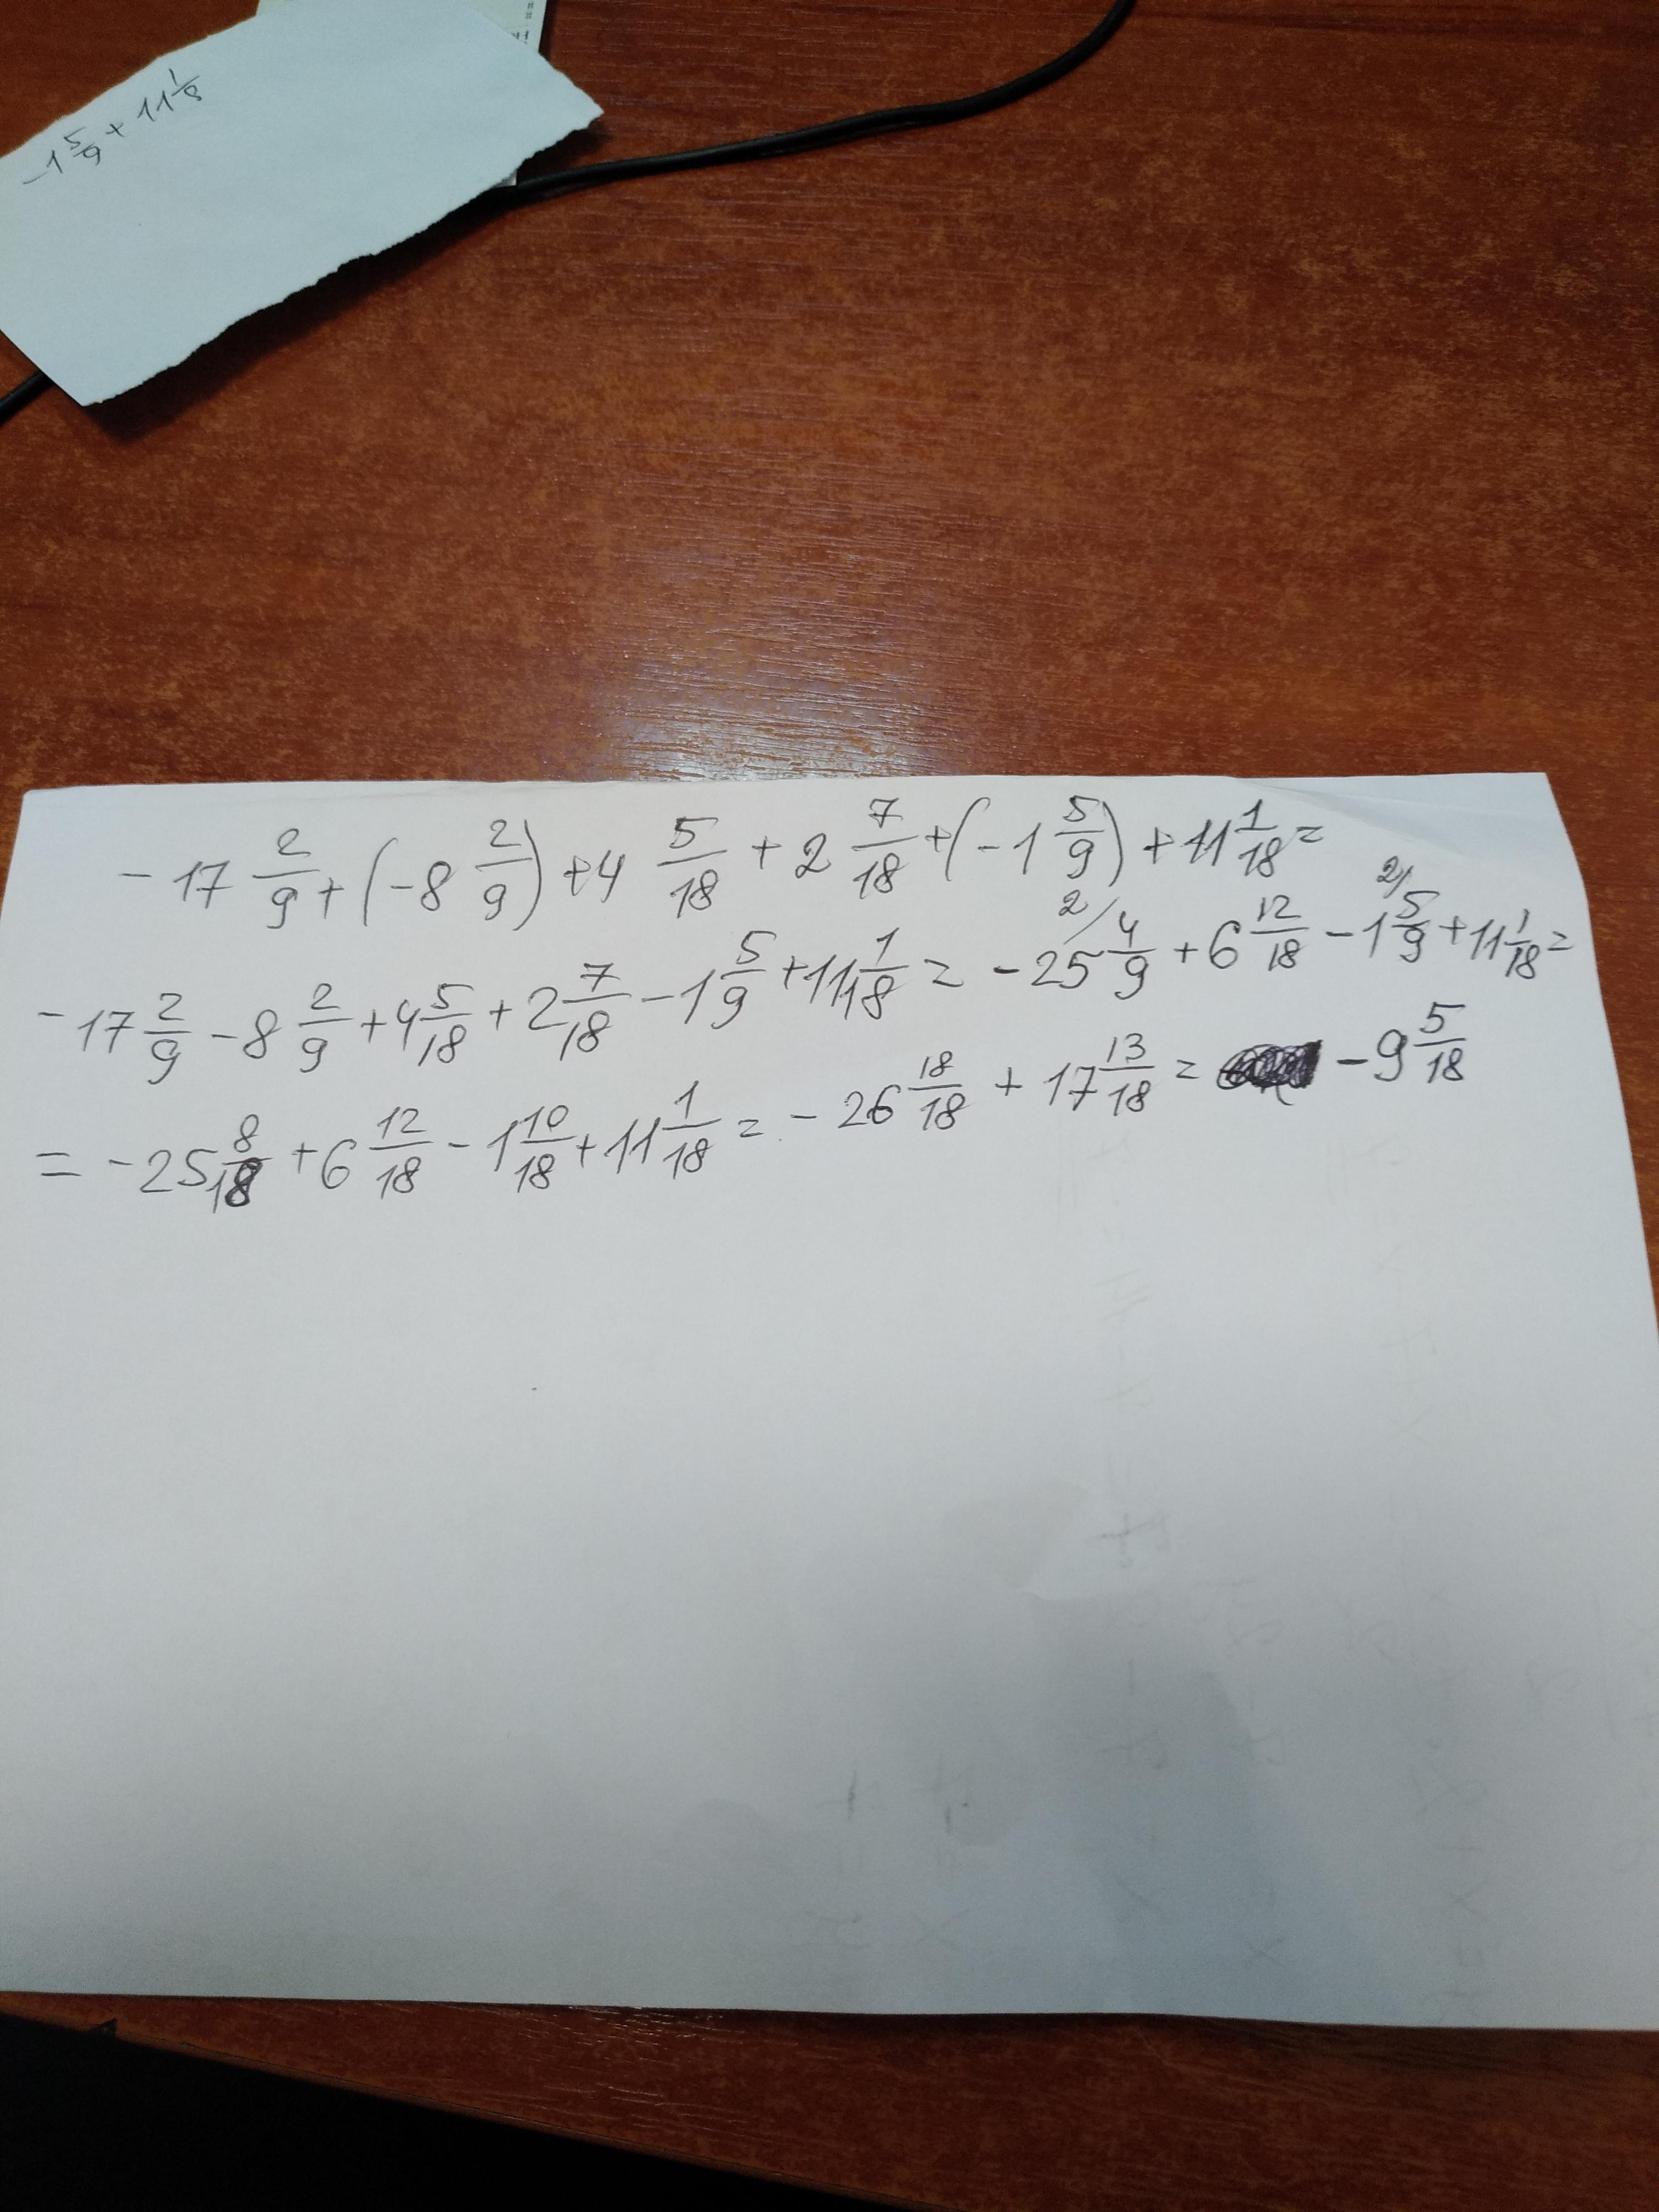 -1 5/9 + 11 1/8
-17 2/9 + (-8 2/9) + 4 5/18 + 2 7/18 + (-1 5/9) + 11 1/18 =
-17 2/9 - 8 2/9 + 4 5/18 + 2 7/18 - 1 5/9 + 11 1/18 = - 2/ 25 4/9 + 6 12/18 - 2/ 1 5/9 + 11 1/18 =
= -25 8/18 + 6 12/18 - 1 10/18 + 11 1/18 = - 26 18/18 + 17 13/18 = - 9 5/18